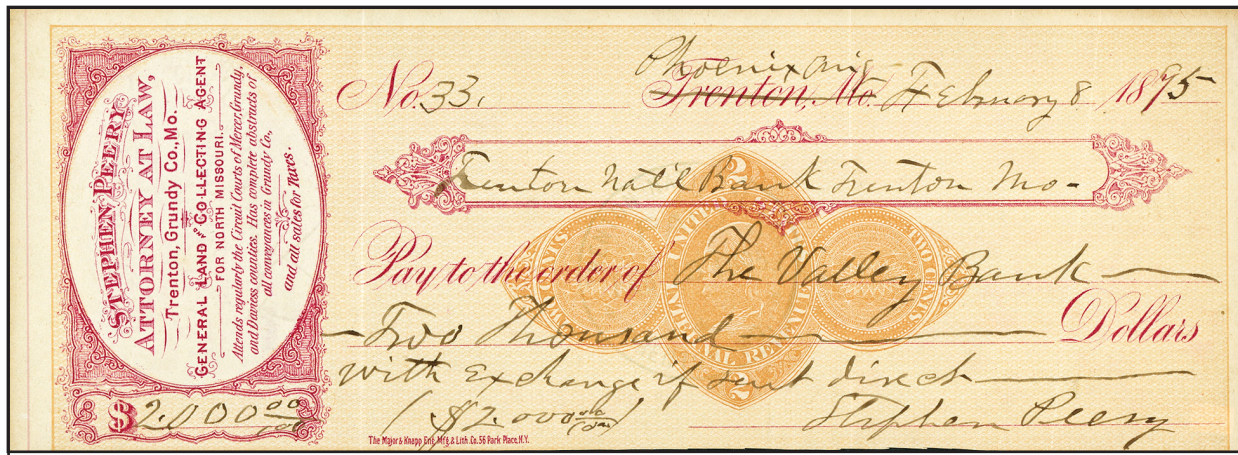 STEPHEN PEERY
ATTORNEY AT LAW,
Trenton, Grundy Co., Mo.
GENERAL LAND & COLLECTING AGENT
FOR NORTH MISSOURI.
Attends regularly the Circuit Courts of Mercer, Grundy,
and Daviess counties. Has complete abstracts of
all conveyances in Grundy Co,
and all sales for Taxes.
$2.000 00/100
Phoenix Ariz
No. 33. Trenton, Mo. February 8 1895
Trenton Nat'l Bank Trenton Mo-
Pay to the order of The Valley Bank
Two Thousand Dollars
with exchange if sent direct
($2.000 00/100) Stephen Peery
The Major & Knapp Eng. Mfg. & Lith. Co. 56 Park Place, N.Y.
UNITED
INTERNAL REVENUE
TWO CENTS